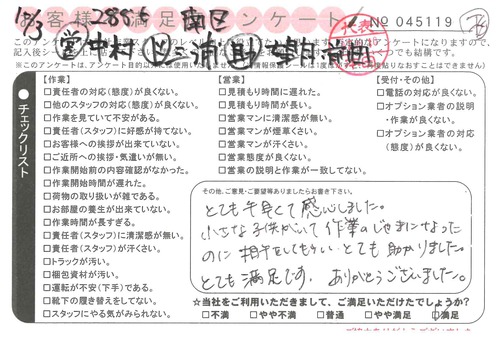 お客様満足アンケート
NO 045119
11/3 2886 南区
【作業】
□責任者の対応(態度)が良くない。
□他のスタッフの対応(態度)が良くない。
□作業を見ていて不安がある。
□責任者(スタッフ)に好感が持てない。
□お客様への挨拶が出来ていない。
□ご近所への挨拶・気遣いが無い。
□作業開始前の内容確認がなかった。
□作業開始時間が遅れた。
□荷物の取り扱いが雑である。
□お部屋の養生が出来ていない。
□作業時間が長すぎる。
□責任者(スタッフ)に清潔感が無い。
□責任者(スタッフ)が汗くさい。
□トラックが汚い。
□梱包資材が汚い。
□運転が不安(下手)である。
□靴下の履き替えをしてない。
□スタッフにやる気がみられない。
【営業】
□見積もり時間に遅れた。
□見積もり時間が長い。
□営業マンに清潔感が無い。
□営業マンが煙草くさい。
□営業マンが汗くさい。
□営業態度が良くない。
□営業の説明と作業が一致してない。
【受付・その他】
□電話の対応が良くない。
□オプション業者の説明・作業が良くない。
□オプション業者の対応(態度)が良くない。
チェックリスト
その他、ご意見・ご要望等ありましたらお書き下さい。
とても手早くて感心しました。
小さな子供がいて作業のじゃまになった
のに相手をしてもらいとても助かりました。
とても満足です。ありがとうございました。
☆当社をご利用いただきまして、ご満足いただけたでしょうか?
□不満 □やや不満 □普通 □やや満足 □満足